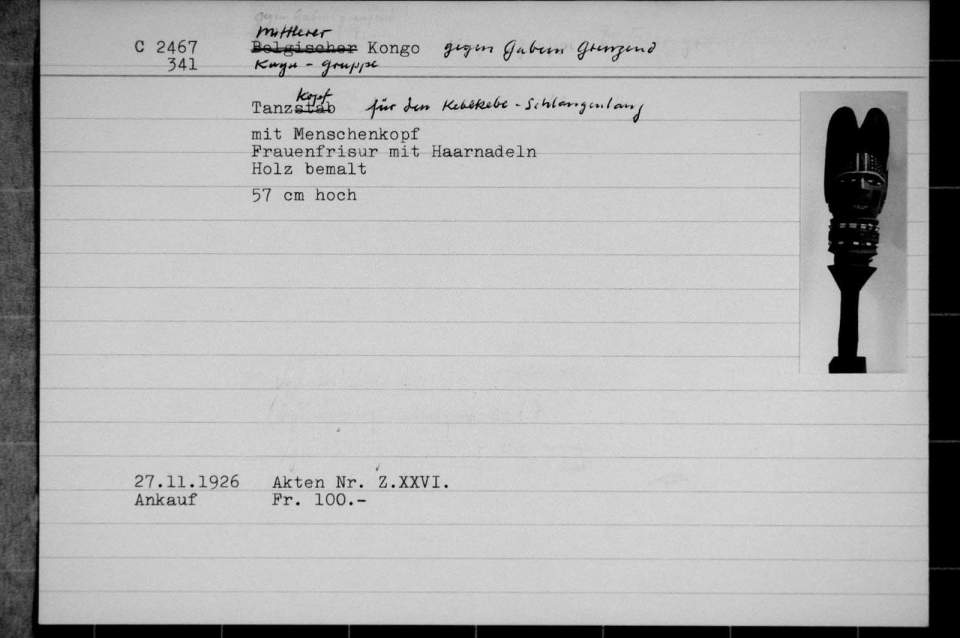 Mittlerer
C 2467 Belgischer Kongo gegen Gabun Grenzend
341 Kuyu - gruppe
kopf
Tanzstab für den Kebekebe - Schlangentanz
mit Menschenkopf
Frauenfrisur mit Haarnadeln
Holz bemalt
57 cm hoch
27.11.1926 Akten Nr. Z.XXVI.
Ankauf Fr. 100.-